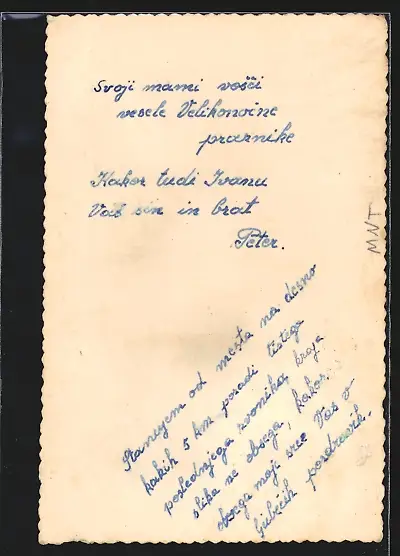 Svoji mami vošči
vesele Velikonočne
praznike
Kakor tudi Ivanu
Vaš sin in brat
Peter.
MNT
Stanujem od mesta na desno
kakih 5 km poradi tistega
poslednjega zvonika, kraja
slika ne obsega, kakor
obsega moje srce Vas v
ljubečih pozdravih.